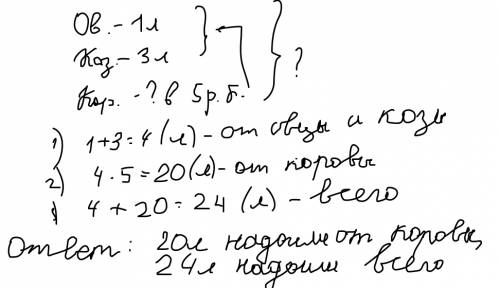 Ов. - 1л
Коз. - 3л
Кор. - ? в 5 р. б.
?
1) 1+3=4(л) - от овцы и козы
2) 4·5=20(л) - от коровы
) 4+20=24(л) - всего
Ответ: 20л надоили от коровы,
24л надоили всего